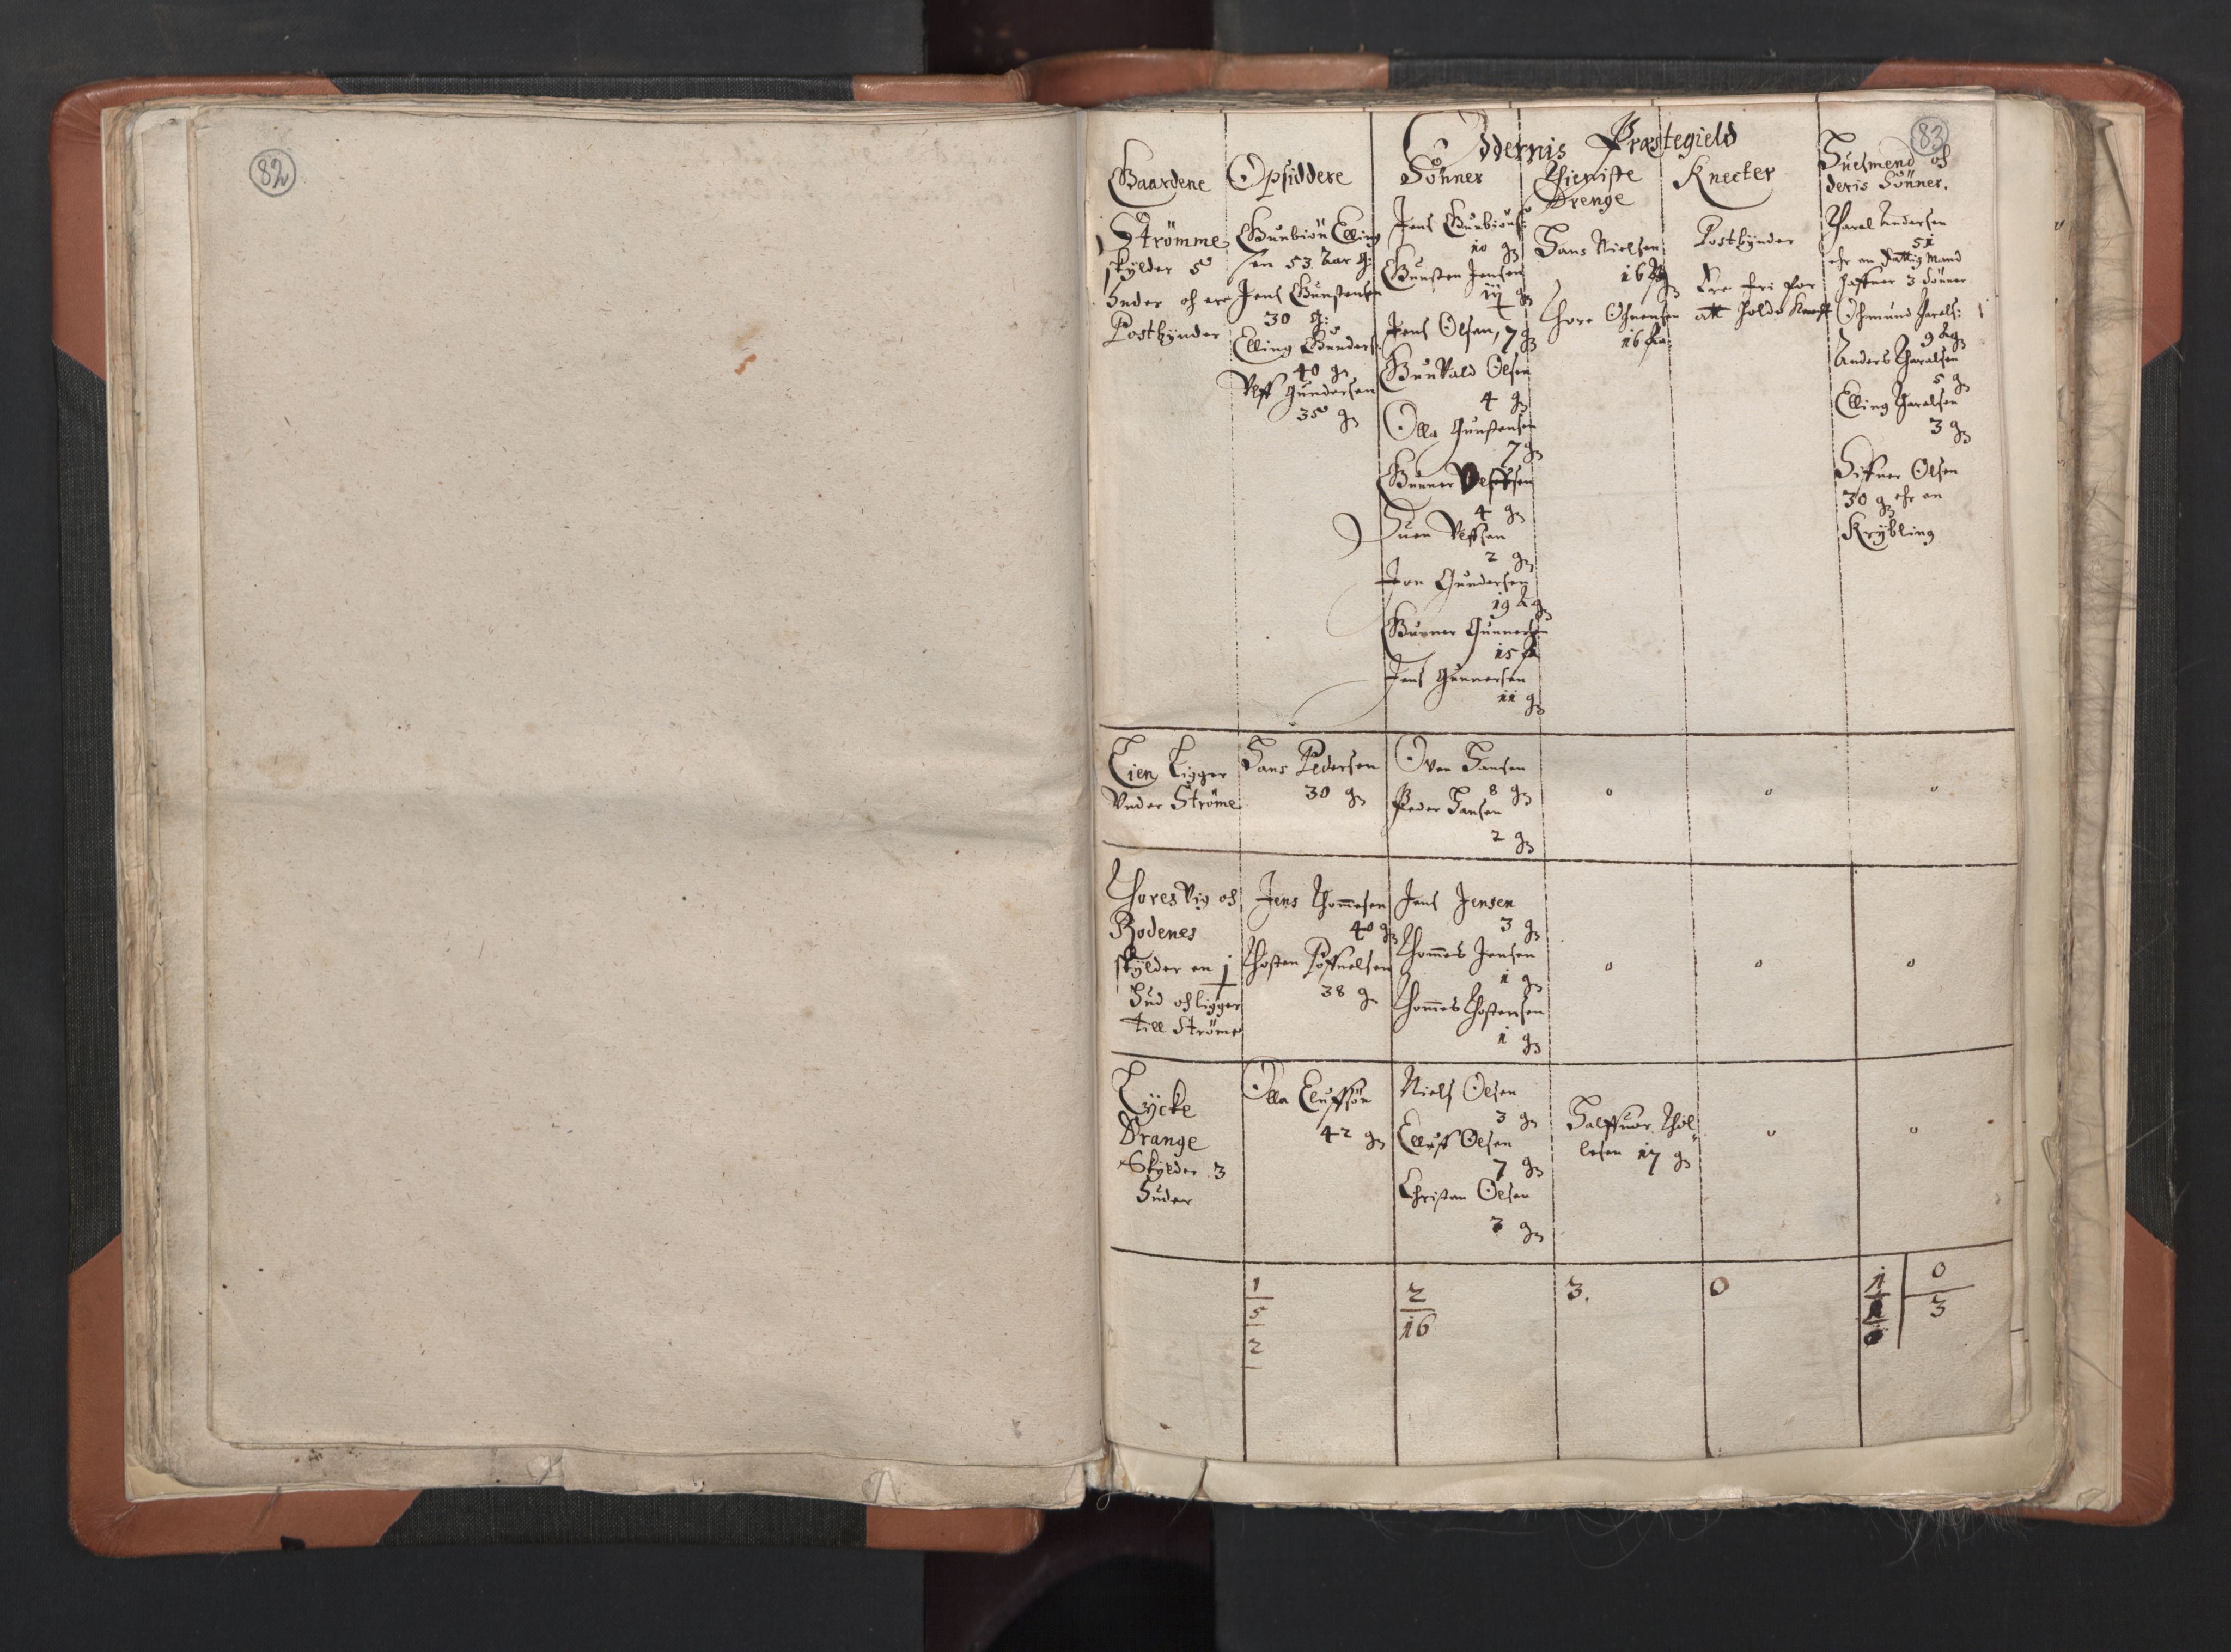 82
83
Oddernis Præstegield
Gaardene
Opsiddere
Sönner
Thieniste
Drenge
Knecter
Huusmend och
deris Sönner.
Strömme
skÿlder 5
huder och ere
Postbÿnder
Gunbiön Elling
sen 53 Aar g:
Jens Gunstensen
30 g:
Elling Gunders:
40 g
Ulff Gundersen
35 g
Jens Gunbiöns:
10 g
Gunsten Jensen
Jens Olsen, 7 g
Gunvald Olsen
4 g
Olla Gunstensen
7 g
Gunner Ulffsen
4 g
Suen Ulffsen
2 g
Jon Gundersen
19 Ag
Gunner Gunnersen
15 A
Jens Gunnersen
11 g
Hans Nielsen
16 Ag
Thore
16 Aa:
Postbÿnder
Ere fri for
att holde Knecht
Harel Andersen
51
ehr en fattig Mand
haffuer 3 sönner
Ohmund Harels:
9 Ag
Anders Harelsen
5 g
Elling Harelsen
3 g
Siffuer Olsen
30 g ehr en
Krÿbling
Eien Ligger
Under Ströme
Hans Pedersen
30 g
Oven Hansen
8 g
Peder Hansen
2 g
Thoresvig och
Rodenes
skÿlder en
Hud och ligger
till Ströme
Jens Thommesen
40 g
Thosten Poffuelsen
38 g
Jens Jensen
3 g
Thommes Jensen
1 g
Thommes Thostensen
1 g
Lÿcke
Drange
Skÿlder 3
Huder
Olla Eluffsön
42 g
Niels Olsen
3 g
Elluff Olsen
7 g
Christen Olsen
3 g
Halffuor Thol
lesen 17 g
1
5
2
2
16
3.
0
1
0
3